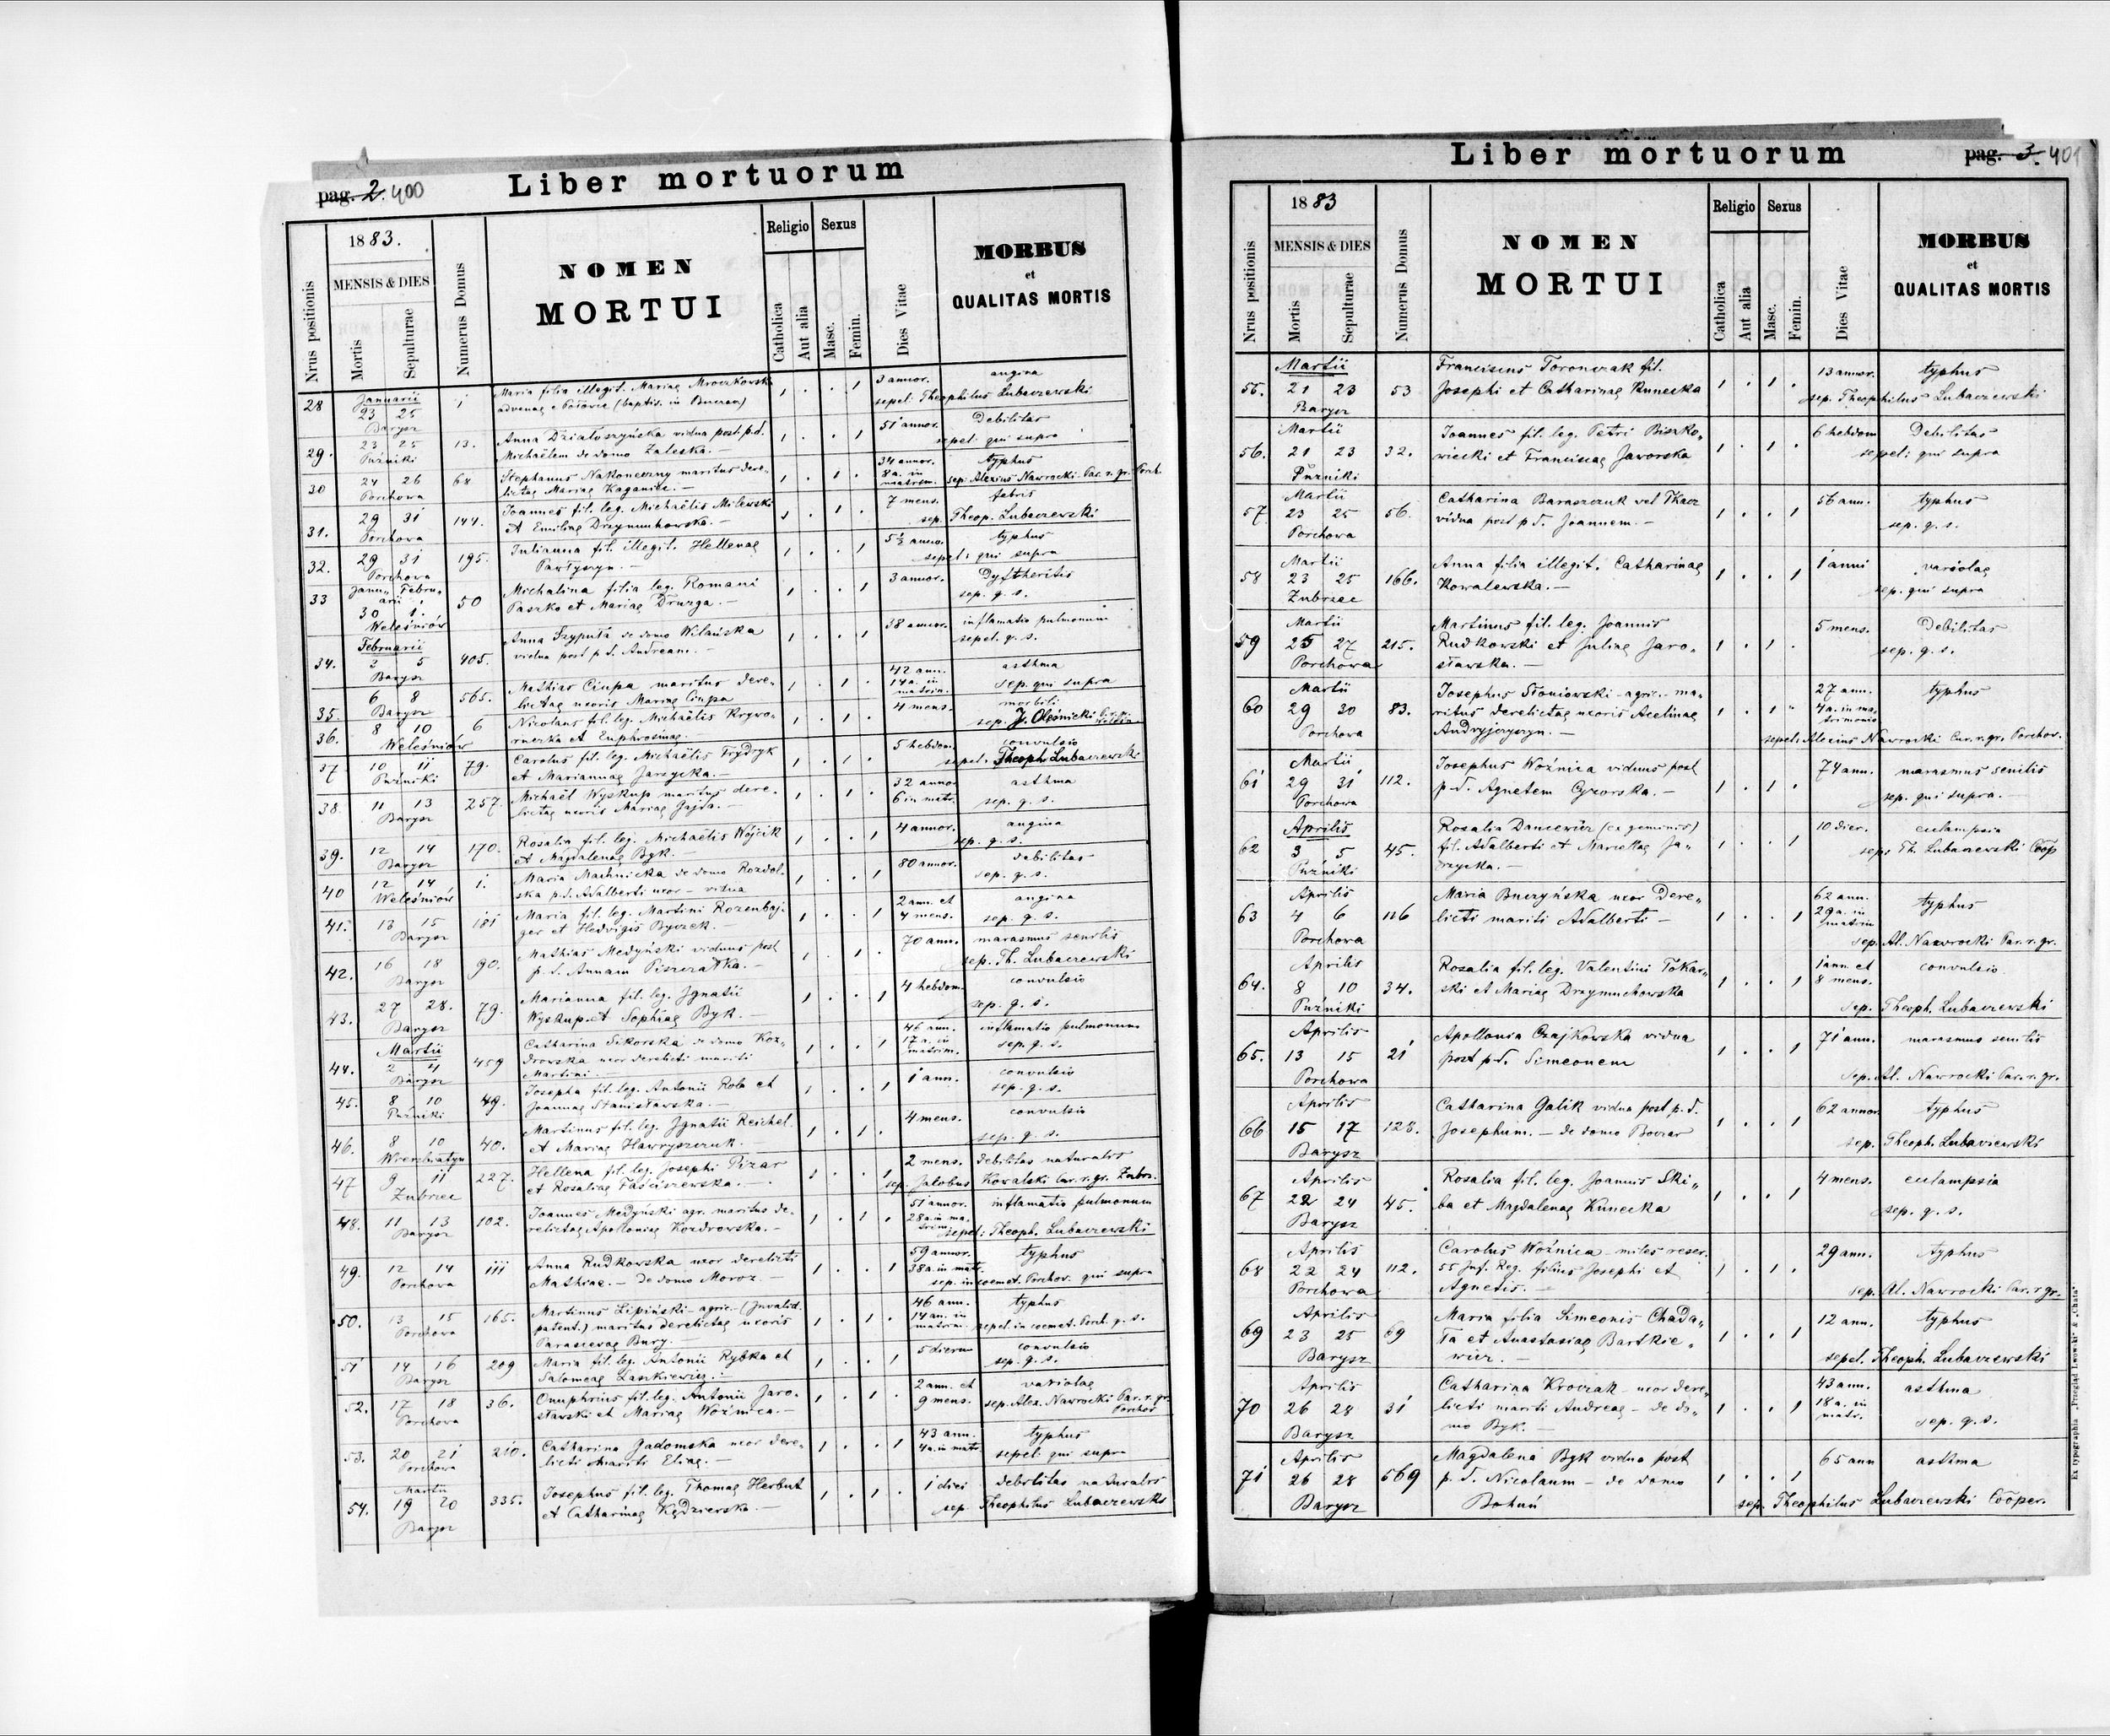 pag. 2. 400
Liber mortuorum
Nrus positionis
1883.
MENSIS & DIES
Mortis
Sepulturae
Numerus Domus
NOMEN
MORTUI
Religio
Catholica
Aut alia
Sexus
Masc.
Femin.
Dies Vitae
MORBUS
et
QUALITAS MORTIS
28 Januarii 23 25 Barysz 1 Maria filia illegit. Mariae Mroczkowska 3 annor. angina
sepel. Theophilus Lubaczewski
29. 23 25 Puźniki 13. Anna Działoszyńska vidua post p.d. 51 annor. Debilitas
Michaëlem de domo Zaleska.— sepel. qui supra
30 24 26 Porchowa 68 Stephanus Nakoneczny maritus dere- 34 annor. 8 a. in matrim. typhus
lictae Mariae Kaganiec.— sep. Alexius Nawrocki Par. r. gr. Porch.
31. 29 31 Porchowa 144. Joannes fil. leg. Michaëlis Milewski 7 mens. febris
et Emiliae Drzymuchowska.— sep. Theop. Lubaczewski
32. 29 31 Porchova 195. Julianna fil. illegit. Hellenae 5½ annor. typhus
Pawłyszyn.— sepel: qui supra
33 Janu„ Febru„arii 30 1. Weleśniów 50 Michalina filia leg. Romani 3 annor. Dyftheritis
Paszko et Mariae Druzga.— sep. q. s.
34. Februarii 2 5 Barysz 405. Anna Szypuła de domo Wilańska 38 annor. inflamatio pulmonum
vidua post p d. Andream.— sepel. q. s.
35. 6 8 Barysz 565. Mathias Ciupa maritus dere- 42 ann. 14 a. in matrim. asthma
lictae uxoris Mariae Ciupa sep. qui supra
36. 8 10 Weleśniów 6 Nicolaus fil. leg. Michaëlis Krywo- 4 mens. morbili
ruczka et Euphrosinae.— sep. J. Oleśnicki
37 10 11 Puźniki 79. Carolus fil. leg. Michaëlis Frydryk 5 hebdom. convulsio
et Mariannae Jarzycka.— sepel. Theoph Lubaczewski
38. 11 13 Barysz 257. Michaël Wyskup maritus dere- 32 annor. 6 in matr. asthma
lictae uxoris Mariae Gajda.— sep. q. s.
39. 12 14 Barysz 170. Rosalia fil. leg. Michaëlis Wójcik 4 annor. angina
et Magdalenae Byk.— sep. q. s.
40 12 14 Weleśniów 1. Maria Machnicka de domo Rozdol- 80 annor. debilitas
ska p.d. Adalberti uxor – vidua sep. q. s.
41. 13 15 Barysz 181 Maria fil. leg. Martini Rozenbaj- 2 ann. et 4 mens. angina
ger et Hedvigis Byczek.— sep. q. s.
42. 16 18 Barysz 90. Mathias Medyński viduus post 70 ann. marasmus senilis
p. d. Annam Piszczatka.— sep. Th. Lubaczewski
43. 27 28. Barysz 79. Marianna fil. leg. Ignatii 4 hebdom. convulsio
Wyskup et Sophiae Byk.— sep. q. s.
44. Martii 2 4 Barysz 459 Catharina Sikorska de domo Koz- 46 ann. 17 a. in matrim. inflamatio pulmonum
drowska uxor derelicti mariti sep. q. s.
Martini.—
45. 8 10 Puźniki 49. Josepha fil. leg. Antonii Rola et 1 ann. convulsio
Joannae Stanisławska.— sep. q. s.
46. 8 10 40. Martinus fil. leg. Ignatii Reichel 4 mens. convulsio
et Mariae Hawryszczuk.— sep. q. s.
47 9 11 Zubrzec 227. Hellena fil. leg. Josephi Pizar 2 mens. debilitas naturalis
et Rosaliae Taściszewska.— sep. Jakobus Kowalski Par. r. gr. Zubrz.
48. 11 13 Barysz 102. Joannes Medyński agr. maritus de- 51 annor. 28 a. in matrim. inflamatio pulmonum
relictae Apolloniae Kozdrowska.— sepel: Theoph. Lubaczewski
49. 12 14 Porchova 111 Anna Rudkowska uxor derelicti 59 annor. 38 a. in matr. typhus
Mathiae.— de domo Moroz.— sep. in coemet. Porchov. qui supra
50. 13 15 Porchova 165. Martinus Lipiński – agric.– (Invalid. 46 ann. 14 an. in matrim. typhus
patent.) maritus derelictae uxoris sepel in coemet. Porch. q. s.
Parascevae Bury.—
51 14 16 Barysz 209 Maria fil. leg. Antonii Rybka et 5 dierum convulsio
Salomeae Laszkiewicz.— sep. q. s.
52. 17 18 Porchova 36. Onuphrius fil. leg. Antonii Jaro- 2 ann. et 9 mens. variolae
sławski et Mariae Woźnica.— sep. Alex. Nawrocki Par. r. gr. Porchov
53. 20 21 Porchowa 210. Catharina Gadomska uxor dere- 43 ann. 4 a. in matr. typhus
licti mariti Eliae.— sepel: qui supra
54. Martii 19 20 Barysz 335. Josephus fil. leg. Thomae Herbut 1 diei debilitas naturalis
et Catharinae Kędzierska.— sep. Theophilus Lubaczewski
Liber mortuorum
pag. 3. 401
Nrus positionis
1883
MENSIS & DIES
Mortis
Sepulturae
Numerus Domus
NOMEN
MORTUI
Religio
Catholica
Aut alia
Sexus
Masc.
Femin.
Dies Vitae
MORBUS
et
QUALITAS MORTIS
55. Martii 21 23 Barysz 53 Franciscus Toronczak fil. 13 annor. typhus
Josephi et Catharinae Kunecka sep. Theophilus Lubaczewski
56. Martii 21 23 Puźniki 32. Joannes fil. leg. Petri Biszko„ 6 hebdom Debilitas
wiecki et Franciscae Jaworska sepel: qui supra
57. Martii 23 25 Porchowa 56. Catharina Baraszczuk vel Tkacz 56 ann. typhus
vidua post p d. Joannem.— sep. q. s.
58 Martii 23 25 Zubrzec 166. Anna filia illegit. Catharinae 1 anni variolae
Kowalewska.— sep. qui supra
59 Martii 25 27 Porchowa 215. Martinus fil. leg. Joannis 5 mens. Debilitas
Rudkowski et Juliae Jaro- sep. q. s.
sławska.—
60 Martii 29 30 Porchova 83. Josephus Słoniowski – agric.– ma- 27 ann. 4 a. in matrimonio typhus
ritus derelictae uxoris Acelinae
Andryjczyszyn.— sepel. Alexius Nawrocki Cur. r. gr. Porchov.
61 Martii 29 31 Porchowa 112. Josephus Woźnica viduus post 74 ann. marasmus senilis
p. d. Agnetem Cyzorska.— sep. qui supra.
62 Aprilis 3 5 Puźniki 45. Rosalia Dancewicz (ex geminis) 10 dier. eclampsia
fil. Adalberti et Marcellae Ja- sep. Th. Lubaczewski Coop
rzycka.—
63 Aprilis 4 6 Porchowa 116 Maria Buczyńska uxor Dere„ 62 ann. 29 a. in matrim typhus
licti mariti Adalberti –
sep. Al. Nawrocki Par. r. gr.
64. Aprilis 8 10 Puźniki 34. Rosalia fil. leg. Valentini Tokar„ 1 ann. et 8 mens. convulsio
ski et Mariae Drzymuchowska
sep. Theoph. Lubaczewski
65. Aprilis 13 15 Porchowa 21 Apollonia Czajkowska vidua 71 ann. marasmus senilis
post p.d. Simeonem
sep. Al. Nawrocki Par. r. gr.
66 Aprilis 15 17 Barysz 128. Catharina Galik vidua post p. d. 62 annor typhus
Josephum.— de domo Boczar sep. Theoph. Lubaczewski
67 Aprilis 22 24 Barysz 45. Rosalia fil. leg. Joannis Ski„ 4 mens. eclampsia
ba et Magdalenae Kunecka sep. q. s.
68 Aprilis 22 24 Porchowa 112. Carolus Woźnica – miles reser. 29 ann. typhus
55 Inf. Reg. filius Josephi et
Agnetis.— sep. Al. Nawrocki Par. r gr.
69 Aprilis 23 25 Barysz 69 Maria filia Simeonis Chada„ 12 ann. typhus
ła et Anastasiae Bartkie„
wicz.— sepel. Theoph. Lubaczewski
70 Aprilis 26 28 Barysz 31 Catharina Kroczak – uxor dere„ 43 ann. 18 a. in matr. asthma
licti mariti Andreae – de do„ sep. q. s.
mo Byk.—
71 Aprilis 26 28 Barysz 569 Magdalena Byk vidua post 65 ann asthma
p. d. Nicolaum – de domo
Bohuń sep. Theophilus Lubaczewski Cooper.
Ex typographia „Przegląd Lwowski“ & „Chata“